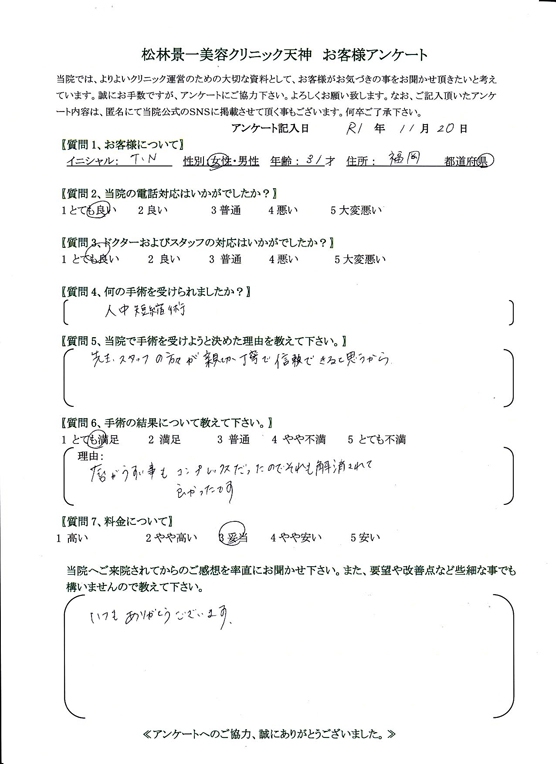 松林景一美容クリニック天神 お客様アンケート
当院では、よりよいクリニック運営のための大切な資料として、お客様がお気づきの事をお聞かせ頂きたいと考え
ています。誠にお手数ですが、アンケートにご協力下さい。よろしくお願い致します。なお、ご記入頂いたアンケ
ート内容は、匿名にて当院公式のSNSに掲載させて頂く事もございます。何卒ご了承下さい。
アンケート記入日 R1 年 11 月 20 日
〖質問1、お客様について〗
イニシャル: T.N 性別:女性・男性 年齢:31才 住所: 福岡 都道府県
〖質問2、当院の電話対応はいかがでしたか?〗
1 とても良い 2 良い 3 普通 4 悪い 5 大変悪い
〖質問3、ドクターおよびスタッフの対応はいかがでしたか?〗
1 とても良い 2 良い 3 普通 4 悪い 5 大変悪い
〖質問4、何の手術を受けられましたか?〗
人中短縮術
〖質問5、当院で手術を受けようと決めた理由を教えて下さい。〗
先生、スタッフの方々が親切、丁寧で信頼できると思うから
〖質問6、手術の結果について教えて下さい。〗
1 とても満足 2 満足 3 普通 4 やや不満 5 とても不満
理由:
唇がうすい事もコンプレックスだったのでそれも解消されて
良かったです
〖質問7、料金について〗
1 高い 2 やや高い 3 妥当 4 やや安い 5 安い
当院へご来院されてからのご感想を率直にお聞かせ下さい。また、要望や改善点など些細な事でも
構いませんので教えて下さい。
いつもありがとうございます。
≪アンケートへのご協力、誠にありがとうございました。≫